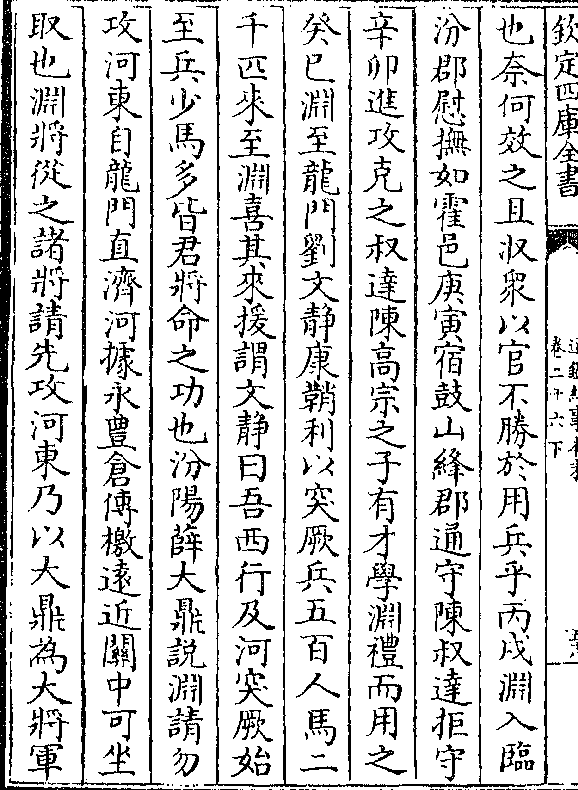 欽定四庫全書
卷二十六下
也奈何效之且收衆以官不勝於用兵乎丙戌淵入臨
汾郡慰撫如霍邑庚寅宿鼓山絳郡通守陳叔達拒守
辛卯進攻克之叔達陳高宗之子有才學淵禮而用之
癸巳淵至龍門劉文静康鞘利以突厥兵五百人馬二
千匹來至淵喜其來援謂文静曰吾西行及河突厥始
至兵少馬多皆君將命之功也汾陽薛大鼎説淵請勿
攻河東自龍門直濟河據永豐倉傳檄遠近關中可坐
取也淵將從之諸將請先攻河東乃以大鼎為大將軍